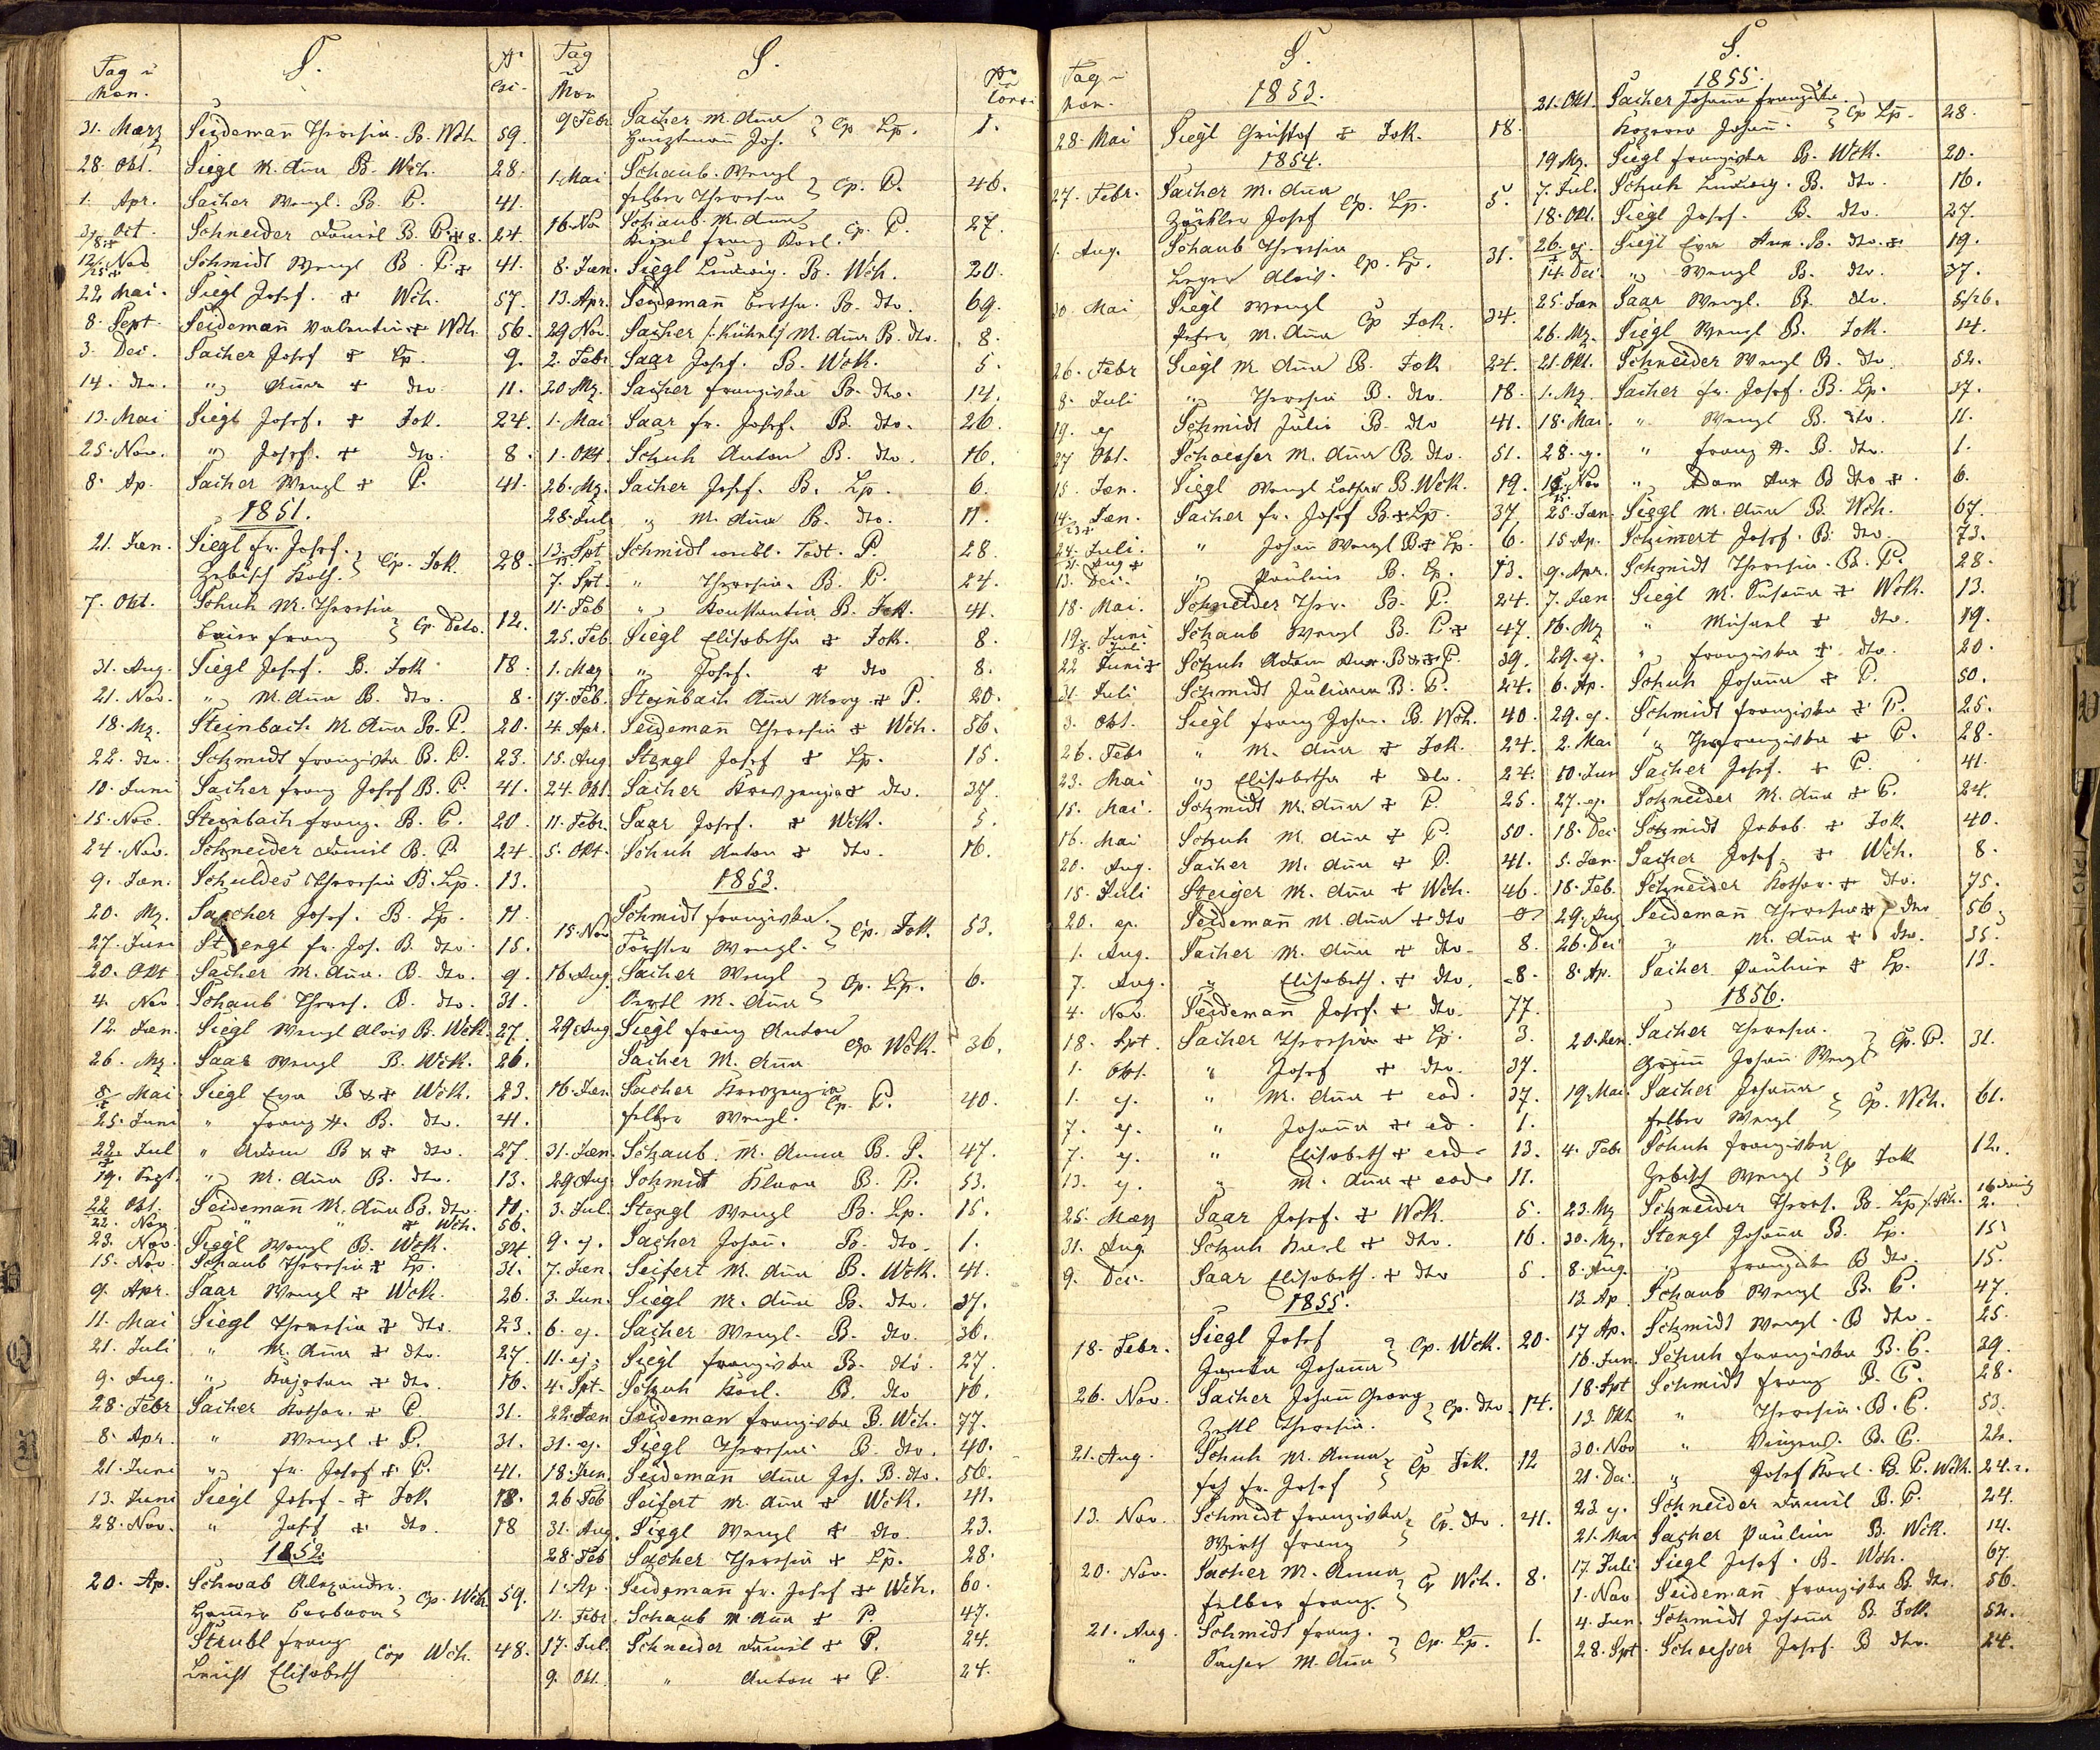 Tag u Mon. S. No Co.
31. März Seidemañ Theresia. B. Wch. 59.
28. Okt. Siegl M. Aña B. Wch. 28.
1. Apr. Sacher Wenzl. B. P. 41.
Oct. Schneider Daniel B. P. 24.
12. Nov Schmidt Wenzl B. P. + 41.
22 Mai. Siegl Josef. + Wch. 57.
8. Sept. Seidemañ Valentin + Wch. 56.
3. Dec. Sacher Josef + Lp. 9.
14. dto. " Aña + dto 11.
13. Mai Siegl Josef. + Jok. 24.
25. Nov. " Josef. + dto. 8.
8. Ap. Sacher Wenzl + P. 41.
1851.
21. Jän. Siegl fr. Josef.
Zebisch Kath. Cop. Jok. 28.
7. Okt. Schuh M. Theresia
Franz Cp. Deto. 12.
31. Aug. Siegl Josef. B. Jok. 18.
21. Nov. " M. Aña B. dto. 8.
18. Mz. Steinbach M. Aña B. P. 20.
22. dto. Schmidt Franziska B. P. 23.
10. Juni Sacher Franz Josef B. P. 41.
15. Nov. Steinbach Franz. B. P. 20.
24. Nov. Schneider Daniel B. P. 24.
9. Jän. Schuldes Theresia B. Lp. 13.
20. Mz. Sacher Josef. B. Lp. 11.
27. Juni Stengl fr. Jos. B. dto. 15.
20. Okt Sacher M. Aña. B. dto. 9.
4. Nov Schaub Theres. B. dto. 31.
12. Jän. Siegl Wenzl Alois B. WcK. 27.
26. Mz Saar Wenzl B. WcK. 26.
8 Mai Siegl Eva B + WcK. 23.
25. Juni " Franz A. B. dto. 41.
22. Jul " Adam B + dto. 27.
19. Sept. " M. Aña B. dto. 13.
22 Okt. Seidemañ M. Aña B. dto.
22. Nov " " + Wch. 56.
23. Nov. Siegl Wenzl B. WcK. 34.
15. Nov. Schaub Theresia + Lp. 31.
9. Apr. Saar Wenzl + WcK. 26.
11. Mai Siegl Theresia + dto. 23.
21. Juli " M. Aña + dto. 27.
9. Aug. " Kajetan + dto. 16.
28. Febr Sacher Kathar. + P. 31.
8. Apr. " Wenzl + P. 31.
21. Juni " fr. Josef + P. 41.
13. Juni Siegl Josef - + Jok. 18.
28. Nov. " Josef + dto. 18
1852.
20. Ap. Schwab Alexander.
Barbara Cp. Wch. 59.
Strubl Franz
Elisabeth Cop Wch. 48.
Tag u Mon S. No
9 Febr Sacher M. Aña
Hauptmañ Jos. Cp Lp. 1.
1. Mai Schaub. Wenzl
Felber Theresia Cp. P. 46.
16. Nov Schaub. M. Aña
Franz Karl. Cp. P. 27.
8. Jän. Siegl Ludwig. B. Wch. 20.
13. Apr. Seidemañ Bertha. B. dto. 69.
29 Nov. Sacher /: Kühnl :/ M. Aña B. dto. 8.
2. Febr Saar Josef. B. WcK. 5.
20 Mz. Sacher Franziska B. dto. 14.
1. Mai Saar fr. Josef. B. dto. 26.
1. Okt. Schuh Anton B. dto. 16.
26. Mz. Sacher Josef. B. Lp. 6.
28. Jul " M. Aña B. dto. 11.
13. Spt Schmidt weibl. Todt. P. 28.
7. Spt. " Theresia. B. P. 24.
11. Feb " Konstantin B. Jok. 41.
25. Feb. Siegl Elisabetha + Jok. 8.
1. März " Josef. + dto 8.
17. Feb. Steinbach Aña Marg. + P. 20.
4. Apr. Seidemañ Theresia + Wch. 56.
15. Aug Stengl Josef + Lp. 15.
24. Okt. Sacher Kreszenzia + dto. 37.
11. Febr. Saar Josef. + WcK. 5.
5. Okt. Schuh Anton + dto. 16.
1853.
15. Nov Schmidt Franziska.
Förster Wenzl. Cp. Jok. 53.
16. Aug. Sacher Wenzl
M. Aña Cp. Lp. 6.
29 Aug. Siegl Franz Anton
Sacher M. Aña Cp. WcK. 36.
16. Jän. Sacher Kreszenzia
Felber Wenzl. Cp. P. 40.
31. Jän. Schaub. M. Anna B. P. 47.
29 Aug. Schmidt Klara B. P. 53.
3. Jul. Stengl Wenzl B. Lp. 15.
9. ej. Sacher Johañ. B. dto. 1.
7. Jän. Seifert M. Aña B. WcK. 41.
3. Jun. Siegl M. Aña B. dto. 27.
6. ej. Sacher Wenzl. B. dto. 36.
11. ej. Siegl Franziska B. dto. 27.
4. Spt. Schuh Karl. B. dto 16.
22. Jän Seideman Franziska B. Wch. 77.
31. ej. Siegl Theresia B. dto. 40.
18. Jun. Seidemañ Aña Jos. B. dto. 56.
26 Feb Seifert M. Aña + WcK. 41.
31. Aug. Siegl Wenzl + dto 23.
28. Feb Sacher Theresia + Lp. 28.
1. Ap. Seidemañ fr. Josef + Wch. 60.
11. Febr. Schaub M. Aña + P. 47.
17. Jul. Schneider Daniel + P. 24.
9. Okt. " Anton + P. 24.
Tag u Mon. S.
1853.
28. Mai Siegl Christof + Jok. 18.
1854.
27. Febr. Sacher M. Aña
Josef Cp. Lp. 5.
1. Aug. Schaub Theresia
Alois. Cp. Lp. 31.
30 Mai Siegl Wenzl
Peter M. Aña Cp Jok. 34.
26. Febr Siegl M. Aña B. Jok 24.
8. Juli " Theresia B. dto. 18.
19. ej Schmidt Julie B. dto 41.
27 Okt. Schoesser M. Aña B. dto. 51.
15. Jän. Siegl Wenzl Lothar B. WcK. 19.
14. Jän. Sacher fr. Josef B + Lp. 37
24. Juli. " Johañ Wenzl B + Lp. 6.
13. Dec. " Pauline B. Lp. 13.
18. Mai. Schneider Ther. B. P. 24.
19. Juni Schaub Wenzl B. P. + 47.
22 Juni + Schuh Adam B + P. 39.
31. Juli Schmidt Juliana B. P. 24.
3. Okt. Siegl Franz Johan. B. Wch. 40.
26. Febr " M. Aña + Jok. 24.
23. Mai " Elisabetha + dto. 24.
15. Mai. Schmidt M. Aña + P. 25.
16. Mai Schuh M. Aña + P. 50.
20. Aug. Sacher M. Aña + P. 41.
15. Juli Steiger M. Aña + Wch. 46.
20. ej. Seidemañ M. Aña + dto
1. Aug. Sacher M. Aña + dto. 8.
7. Aug. " Elisabeth. + dto. 8.
4. Nov. Seidemañ Josef. + dto. 77.
18. Spt. Sacher Theresia + Lp. 3.
1. Okt. " Josef + dto. 37.
1. ej. " M. Aña + eod. 37.
7. ej. " Johaña + ed. 1.
7. ej. " Elisabeth + eod. 13.
13. ej. " M. Aña + eod. 11.
25. März Saar Josef. + WcK. 5.
31. Aug. Schuh Karl + dto. 16.
9. Dec. Saar Elisabeth. + dto 5.
1855.
18. Febr. Siegl Josef
Johaña Cp. WcK. 20.
26. Nov. Sacher Johañ Georg
Zettl Theresia. Cp. dto. 14.
21. Aug. Schuh M. Anna
fr. Josef Cp Jok. 12
13. Nov. Schmidt Franziska
Wirth Franz Cp. dto. 41.
20. Nov. Sacher M. Anna
Felber Franz. Cp Wch. 8.
21. Aug. Schmidt Franz.
" Sacher M. Aña Cp. Lp. 1.
S.
1855.
21. Okt. Sacher Johaña Franziska
Johañ. Cp Lp. 28.
19 Mz. Siegl Franziska B. WcK. 20.
7. Jul. Schuh Ludwig. B. dto. 16.
18. Okt. Siegl Josef. B. dto. 27.
26. ej. Siegl Eva B. dto. + 19.
14. Dec. " Wenzl B. dto. 37.
25. Jän Saar Wenzl. B. dto. 5/26.
26. Mz. Siegl Wenzl B. Jok. 14.
21. Okt. Schneider Wenzl B. dto 52.
1. Mz. Sacher fr. Josef. B. Lp. 37.
18. Mai. " Wenzl B. dto. 11.
28. ej. " Franz A. B. dto. 1.
Nov " Adam B dto + 6.
25. Jän Siegl M. Aña B. Wch. 67.
15. Ap. Schimert Josef. B. dto. 73.
9. Apr. Schmidt Theresia. B. P. 28.
7. Jän Siegl M. Susaña + WcK. 13.
16. Mz " Michael + dto. 19.
29. ej. " Franziska + dto. 20.
6. Ap. Schuh Johaña + P. 50.
29. ej. Schmidt Franziska + P. 25.
2. Mai " Franziska + P. 28.
10. Jun Sacher Josef. + P. 41.
27. ej. Schneider M. Aña + P. 24.
18. Dec Schmidt Jakob. + Jok 40.
5. Jan. Sacher Josef. + Wch. 8.
18. Feb. Schneider Kathar. + dto. 75.
29. Aug Seidemañ Theresia + dto 56
26. Dec " M. Aña + dto. 35.
8. Ap. Sacher Pauline + Lp. 13.
1856.
20. Jän. Sacher Theresia.
Johañ Wenzl Cp. P. 31.
19. Mai. Sacher Johaña
Felber Wenzl Cp. Wch. 61.
4. Febr Schuh Franziska
Zebisch Wenzl Cp Jok 12.
23. Mz Schneider Theres. B. Lp 2.
30. Mz. Stengl Johaña B. Lp. 15
8. Aug. " Franziska B dto. 15.
13. Ap. Schaub Wenzl B. P. 47.
17 Ap. Schmidt Wenzl. B dto. 25.
16. Jun. Schuh Franziska B. P. 39.
18. Spt Schmidt Franz B. P. 28.
13. Okt " Theresia. B. P. 53.
30. Nov " Vinzenz. B. P. 22.
21. Dec. " Josef Karl. B. P. WcK. 24.
23 ej. Schneider Daniel B. P. 24.
21. Mai Sacher Pauline B. WcK. 14.
17. Juli Siegl Josef. B. Wch. 67.
1. Nov Seidemañ Franziska B. dto. 56.
4. Jun. Schmidt Johaña B. Jok. 52.
28. Spt. Schoesser Josef. B dto. 24.